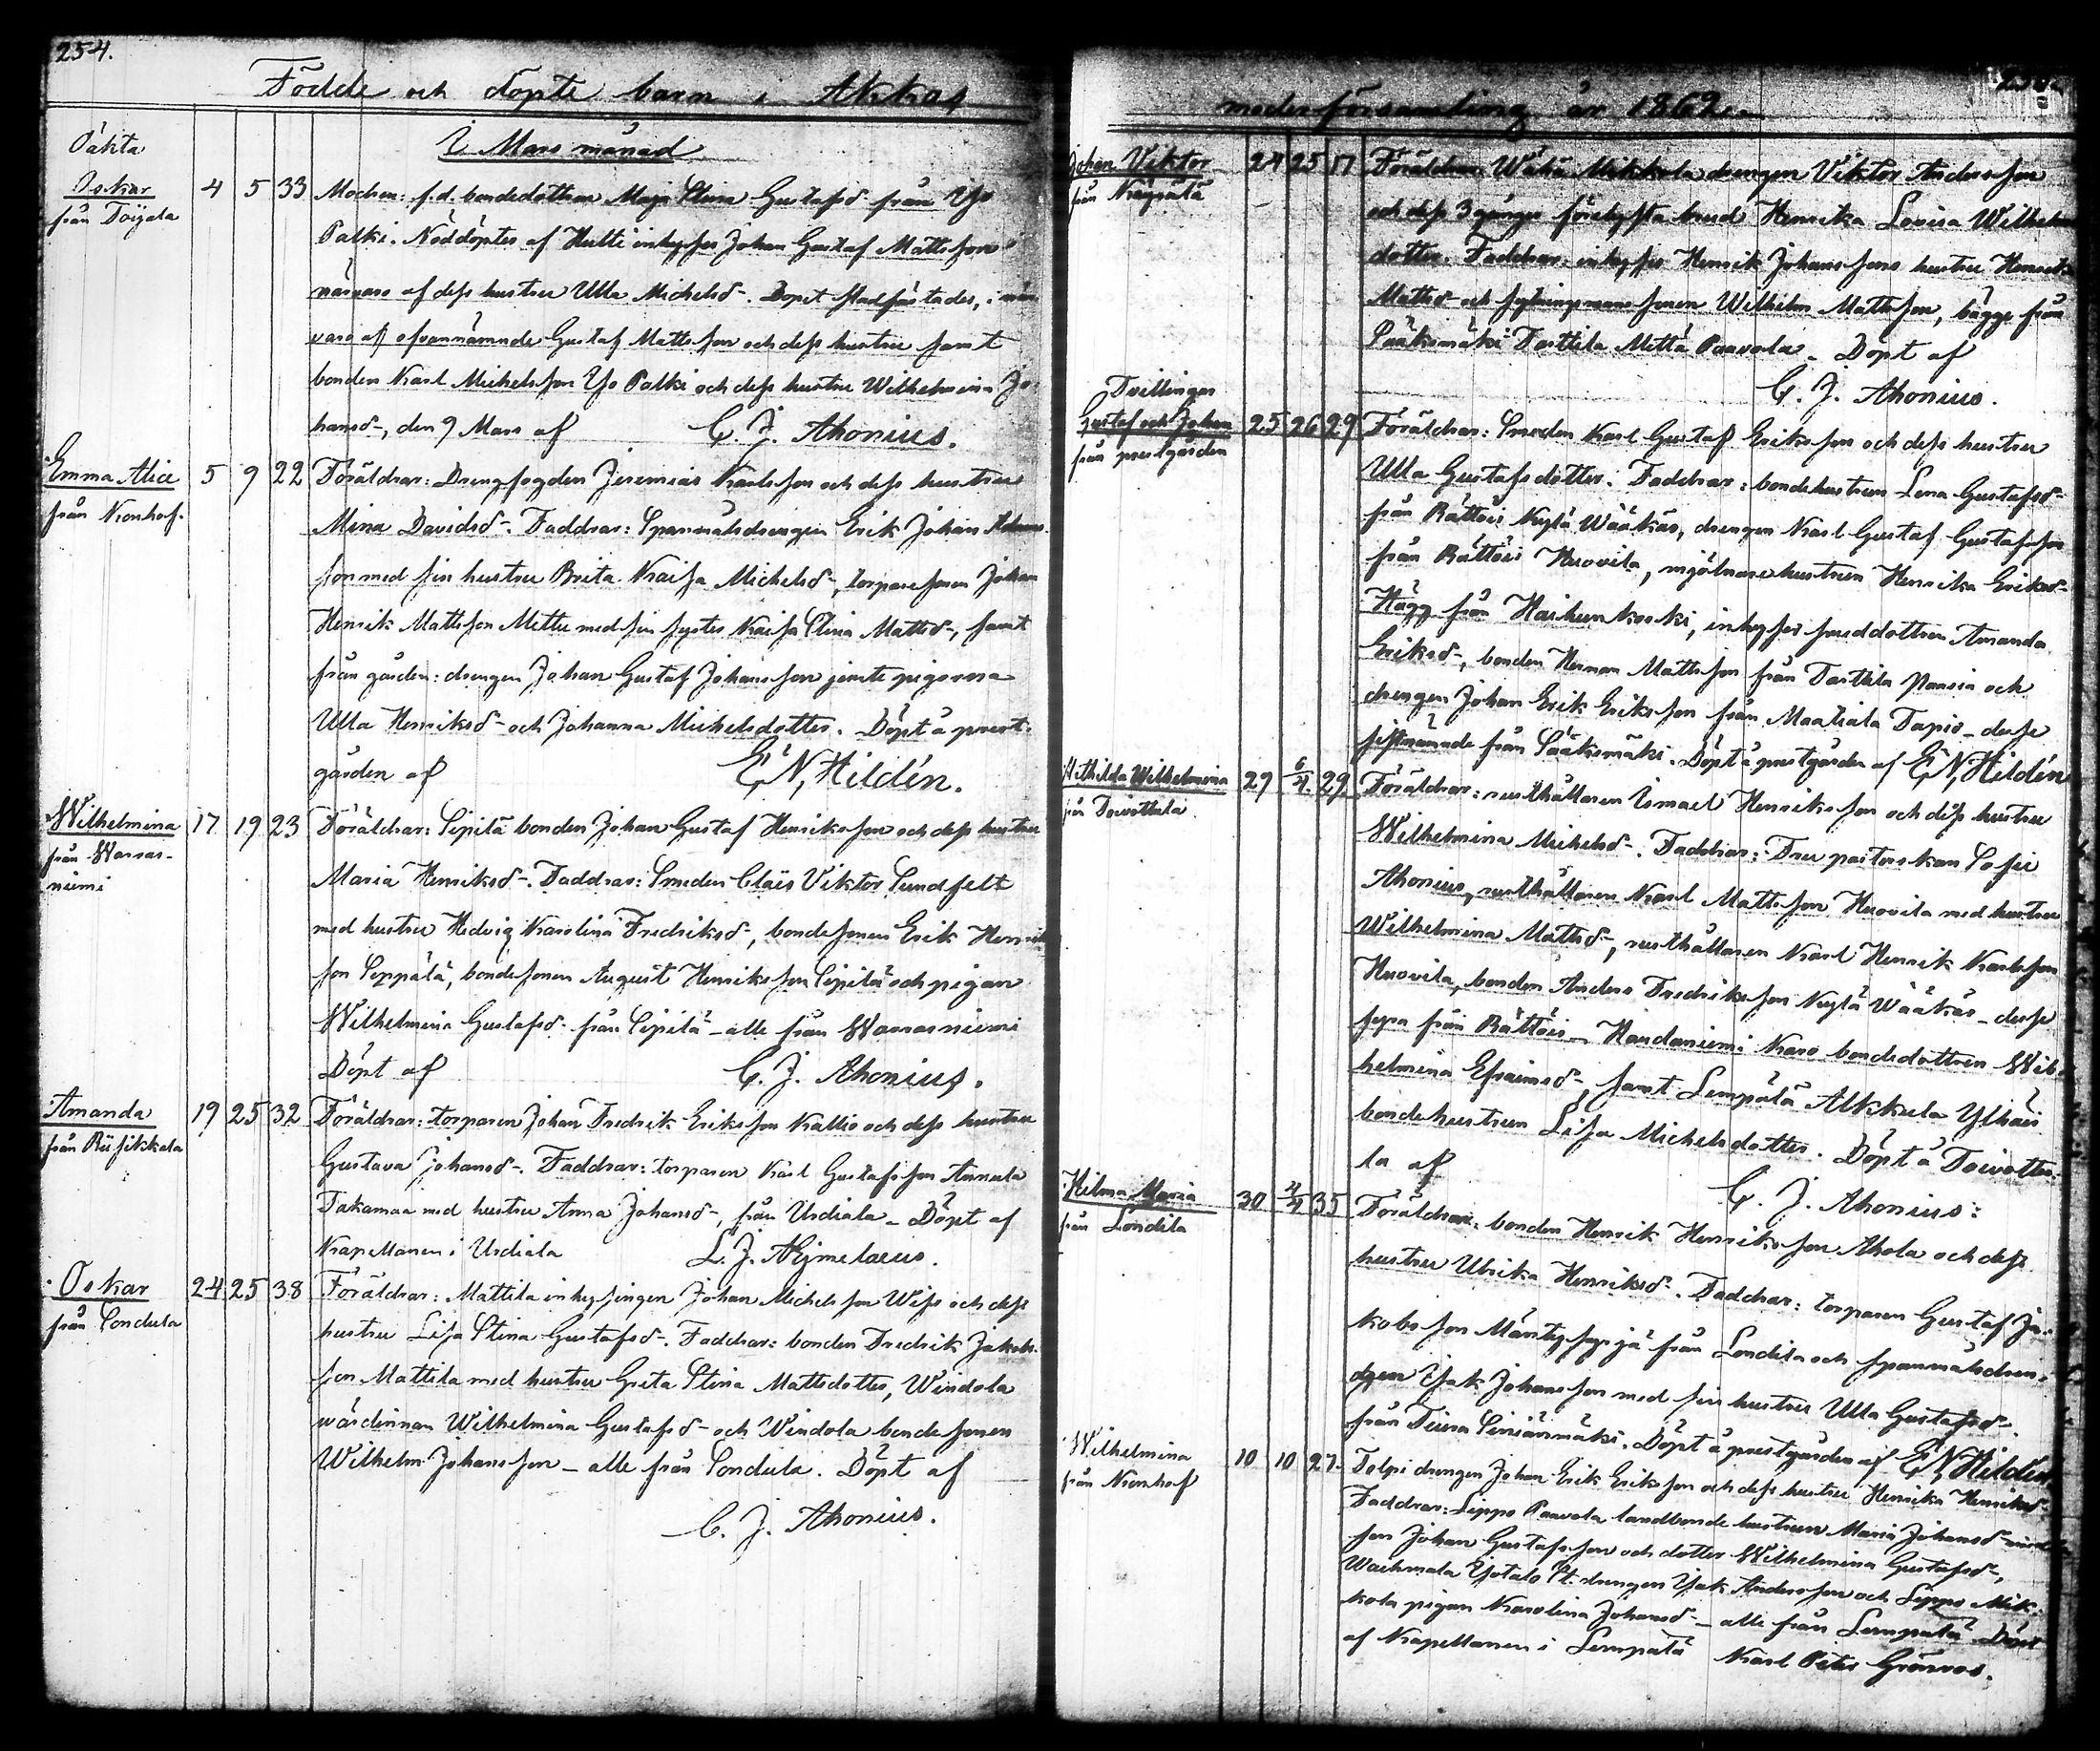 254.
Födde och döpte barn i Akkas
I Mars månad
Oäkta
Oskar
från Toijala
4 5 33
Modren: f.d. bondedottren Maja Stina Gustafsd från Yso
Palki. Nöddöptes af Hutti inhyses Johan Gustaf Mattsson i
närvaro af dess hustru Ulla Michelsd-. Dopet stadfästades, i när-
varo af ofvannämnde Gustaf Mattsson och dess hustru samt
bonden Karl Michelsson Yso Palki och dess hustru Wilhelmina Jo-
hansd-, den 9 Mars af C. J. Ahonius.
Emma Alice
från Kronhof.
5 9 22
Föräldrar: Drengfogden Jeremias Karlsson och dess hustru
Mina Davidsd-. Faddrar: Spanmålsdrengen Erik Johan
son med sin hustru Brita Kaisa Michelsd-, torparesonen Johan
Henrik Mattsson Mettu med sin syster Kaisa Stina Mattsd-, samt
från gården: drengen Johan Gustaf Johansson jemte pigorna
Ulla Henriksd- och Johanna Michelsdotter. Döpt å prest-
gården af E N, Hildén.
Wilhelmina
från Warras-
niemi
17 19 23
Föräldrar: Sipilä bonden Johan Gustaf Henriksson och dess hustru
Maria Henriksd-. Faddrar: Smeden Claës Viktor Sundfelt
med hustru Hedvig Karolina Fredriksd-, bondesonen Erik Henrik
son Seppälä, bondesonen August Henriksson Sipilä och pigan
Wilhelmina Gustafsd- från Sipilä - alle från Warrasniemi
Döpt af C. J. Ahonius.
Amanda
från Riisikkala
19 25 32
Föräldrar: torparen Johan Fredrik Eriksson Kallio och dess hustru
Gustava Johansd-. Faddrar: torparen Karl Gustafsson Annula
Takamaa med hustru Anna Johansd-, från Urdiala - Döpt af
Kapellanen i Urdiala L. J. Ahjmelaeus.
Oskar
från Sondula
24 25 38
Föräldrar: Mattila inhysingen Johan Michelsson Wiss och dess
hustru Lisa Stina Gustafsd-. Faddrar: bonden Fredrik Jakobs-
son Mattila med hustru Greta Stina Mattsdotter, Windola
wärdinnan Wilhelmina Gustafsd- och Windola bondesonen
Wilhelm Johansson - alle från Sondula. Döpt af
C. J. Ahonius.
moderförsamling år 1862.
Johan Viktor
från
24 25 17
Föräldrar: Mikkola drengen Viktor Andersson
och dess 3 gånger förelysta brud Henrika Lovisa Wilhelms
dotter. Faddrar: inhyses Henrik Johanssons hustru Henrika
Mattsd- och sytningsmans sonen Wilhelm Mattsson, bägge från
Sääksmäki Tarttila Mettä Paavola - Döpt af
C. J. Ahonius.
Tvillingar
Gustaf och Johan
från prestgården
25 26 29
Föräldrar: Smeden Karl Gustaf Eriksson och dess hustru
Ulla Gustafsdotter. Faddrar: bondehustrun Lena Gustafsd-
från Rättöis Nygtä Wääkäs, drengen Karl Gustaf Gustafsson
från Rättöis Huovila, mjölnarehustrun Henrika Eriksd-
Hägg från Haihunkoski, inhyses smeddottren Amanda
Eriksd-, bonden Herman Mattsson från Tarttila Paasia och
drengen Johan Erik Eriksson från Maatiala Tapio - desse
sistnämnde från Sääksmäki. Döpt å prestgården af E N, Hildén
Mathilda Wilhelmina
från Toivottula
29 6/4 29
Föräldrar: rusthållaren Ismael Henriksson och dess hustru
Wilhelmina Michelsd-. Faddrar: Fru pastorskan Sofie
Ahonius, rusthållaren Karl Mattsson Huovila med hustru
Wilhelmina Mattsd-, rusthållaren Karl Henrik Karlsson
Huovila, bonden Anders Fredriksson Nygtä Wääkäs - desse
fyra från Rättöis - Haudaniemi Karo bondedottren Wil-
helmina Efraimsd-, samt Lempälä Alkkula Ylhäis
bondehustrun Lisa Michelsdotter. Döpt å Toivottu-
la af C. J. Ahonius.
Hilma Maria
från Londila
30 4/4 35
Föräldrar: bonden Henrik Henriksson Ahola och dess
hustru Ulrika Henriksd-. Faddrar: torparen Gustaf Ja-
kobsson Mäntysyrjä från Londila och spanmålsdren-
gen Isak Johansson med sin hustru Ulla Gustafsd-
från Sinisänmäki. Döpt å prestgården af E N, Hildén
Wilhelmina
från Kronhof
10 10 27.
Tolpi drengen Johan Erik Eriksson och dess hustru Henrika Henriksd-
Faddrar: Lippo Paavola landbonde hustrun Maria Johansd-
son Johan Gustafsson och dotter Wilhelmina Gustafsd-,
Waihmala Isotalo St. drengen Isak Andersson och Lippo Mik-
kola pigan Karolina Johansd- - alle från Lempälä Döpt
af Kapellanen i Lempälä Karl Peter Grönroos.